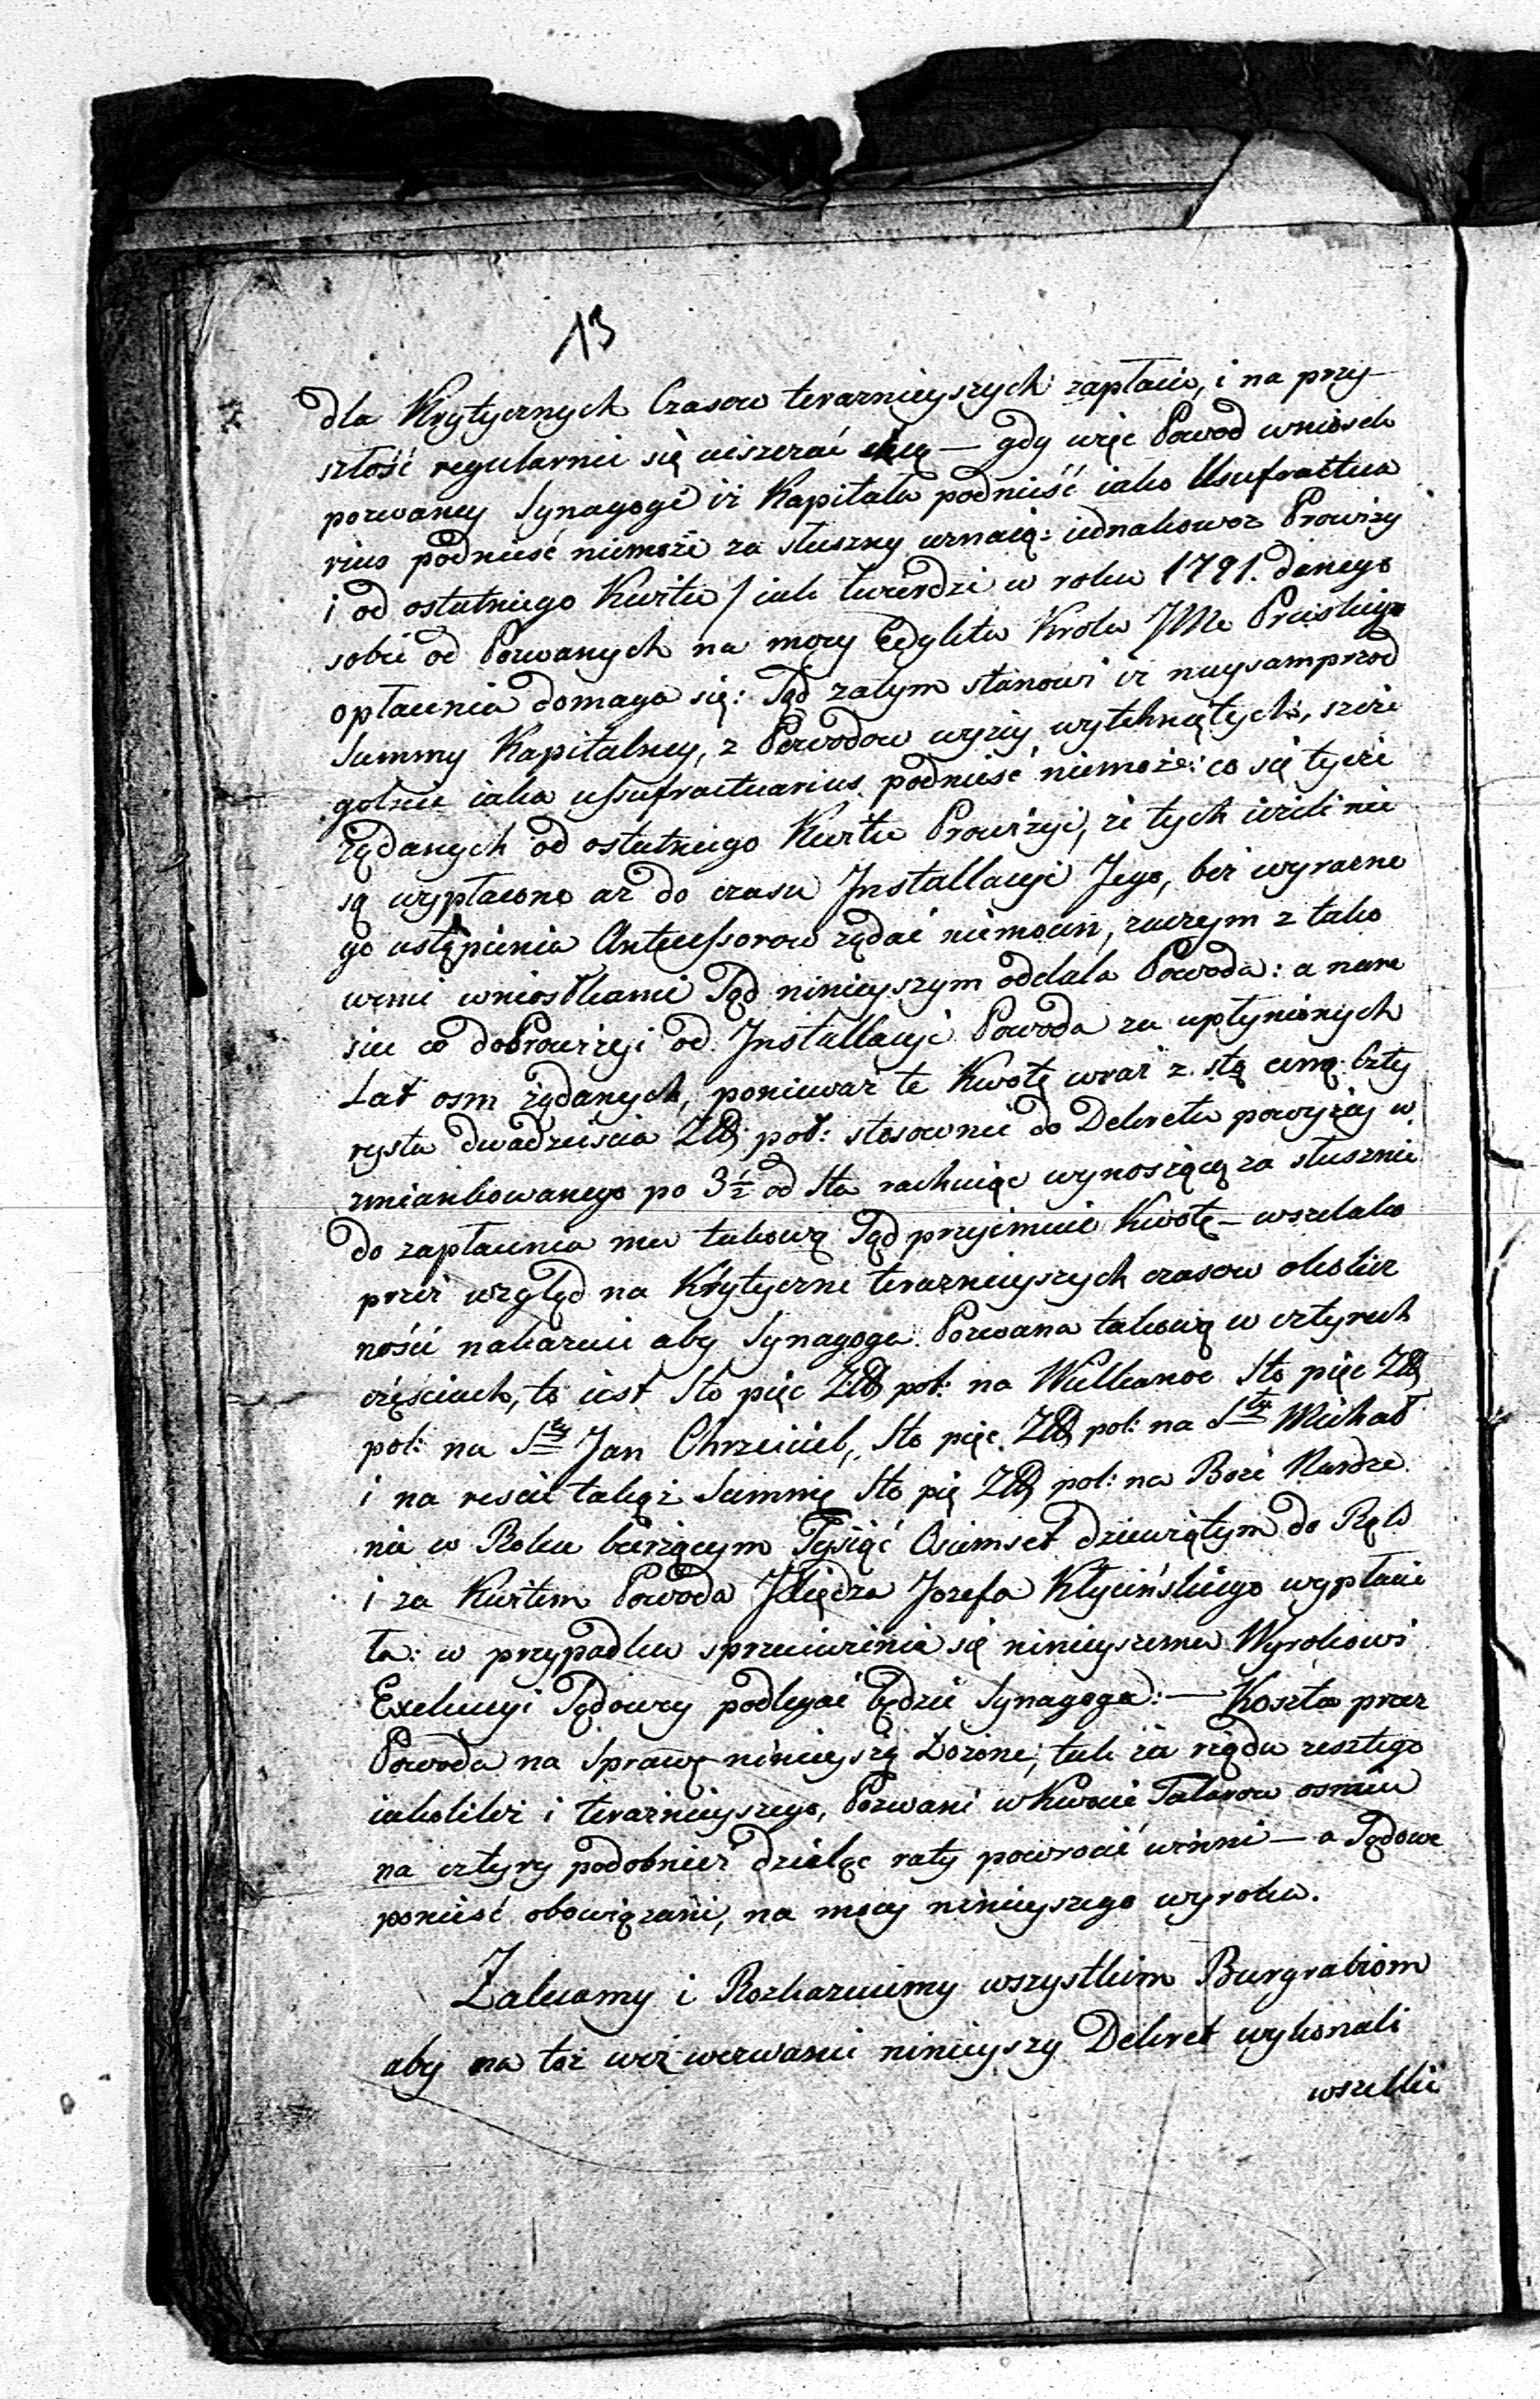 13
dla Krytycznych Czasow teraznieyszych zapłacic, i na przy-
szłość regularnie się uiszczać chcą — gdy więc Powod wniosek
pozwaney Synagogi iż Kapitału podnieść iako Usufructua
rius podnieść niemoże za słuszny uznaią: iednakowoż Prowizy
i od ostatniego Kwitu / iak twierdzi w roku 1791. danego
sobie od Pozwanych na mocy Edyktu Krola JMc Pruskiego
opłacenia domaga się: Sąd zatym stanowi iż naysamprzod
Summy Kapitalney, z Powodow wyżey wytchniętych, szcze
golnie iako usufructuarius podnieść niemoże: co się tycze
żądanych od ostatniego Kwitu Prowizyi, że tych ieżeli nie
są wypłacone aż do czasu Installacyi Jego, bez wyrazne
go ustąpienia Antecessorow żądać niemocen, zaczym z tako
wemi wnioskami Sąd ninieyszym oddala Powoda: a nare
sie co do Prowizyi od Installacyi Powoda za upłynionych
Lat osm żądanych, ponieważ te Kwotę wraz z stą cztery
rysta dwadzieścia Zł: pol: stosownie do Dekretu powyżey w
zmiankowanego po 3½ od sta rachuiąc wynoszącą za słusznie
do zapłacenia ma takową Sąd przyimuie Kwotę — wszelako
przez wzgląd na Krytyczne teraznieyszych czasow okolicz
ności nakazuie aby Synagoga Pozwana takową w cztyrech
częściach, to iest Sto pięc Zł pol: na Wielkanoc Sto pięc Zł
pol: na Sty Jan Chrzciciel, Sto pięc Zł pol: na Sty Michał
i na rescie takąż Summę Sto pię Zł pol: na Boże Narodze
nia w Roku bieżącym Tysiąć Osiemset dziewiątym do Rąk
i za Kwitem Powoda JXiędza Jozefa Kłycińskiego wypłaci
ła: w przypadku sprzeciwienia się ninieyszemu Wyrokowi
Exekucyi Sądowey podlegać będzie Synagoga: — Koszta przez
Powoda na Sprawę ninieyszą Łożone, tak za rządu zeszłego
iakoliteż i terazniejszego, Pozwani w Kwocie Talarow osmiu
na cztyry podobnież dzieląc raty powrocić winni — a Sądowe
ponieść obowiązani, na mocy ninieyszego wyroku.
Zalecamy i Rozkazuiemy wszystkim Burgrabiom
aby na toż weż wezwanie ninieyszy Dekret wykonali
wszelkie